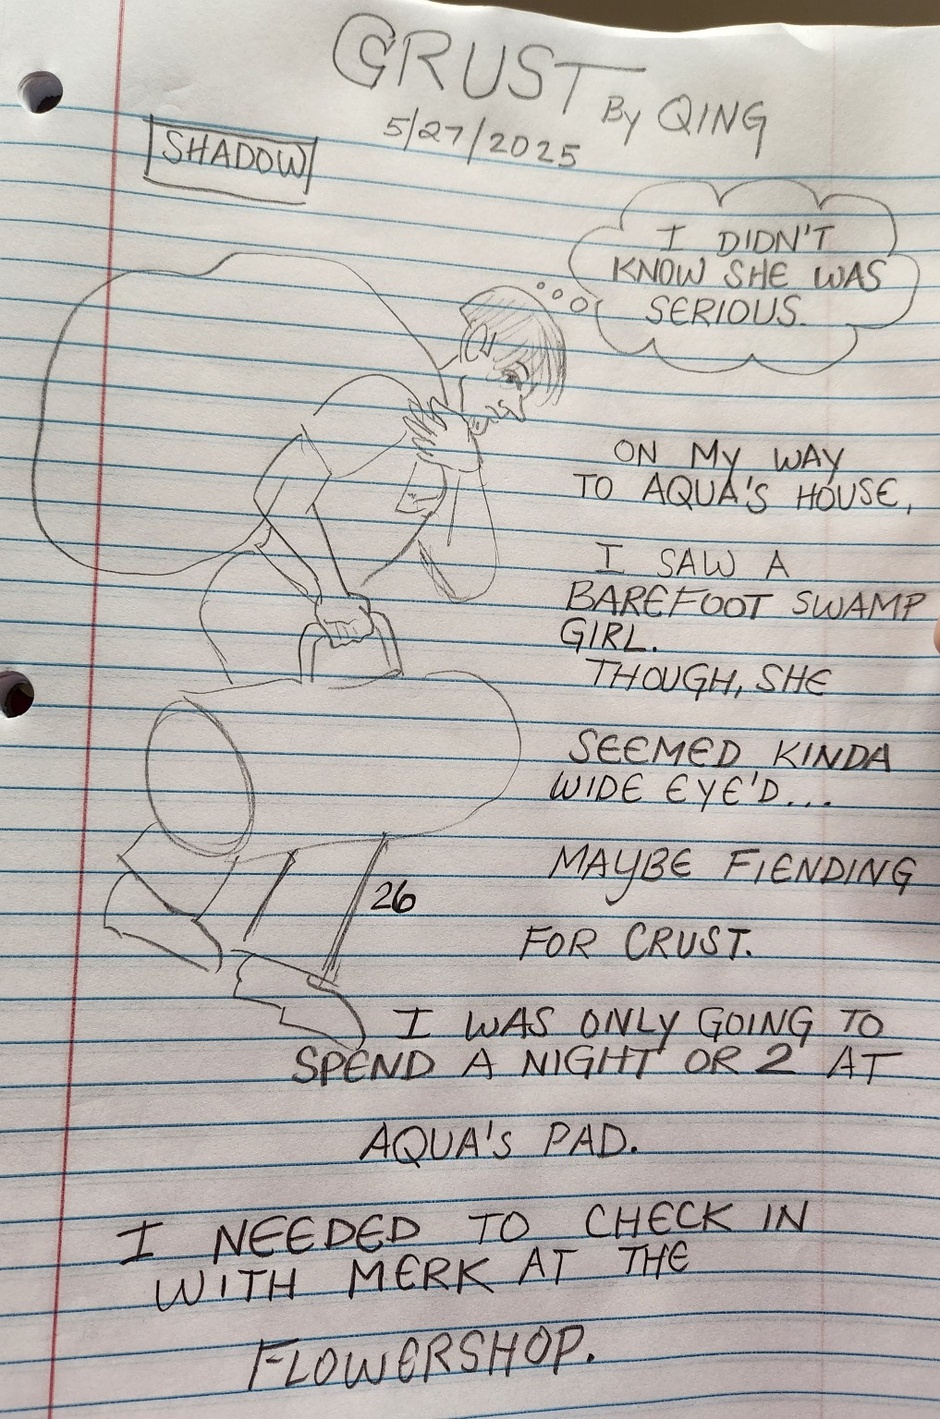 CRUST
By QING
5/27/2025
SHADOW
I DIDN'T
KNOW SHE WAS
SERIOUS.
ON MY WAY
TO AQUA'S HOUSE,
I SAW A
BAREFOOT SWAMP
GIRL.
THOUGH, SHE
SEEMED KINDA
WIDE EYE'D...
MAYBE FIENDING
FOR CRUST.
26
I WAS ONLY GOING TO
SPEND A NIGHT OR 2 AT
AQUA'S PAD.
I NEEDED TO CHECK IN
WITH MERK AT THE
FLOWERSHOP.